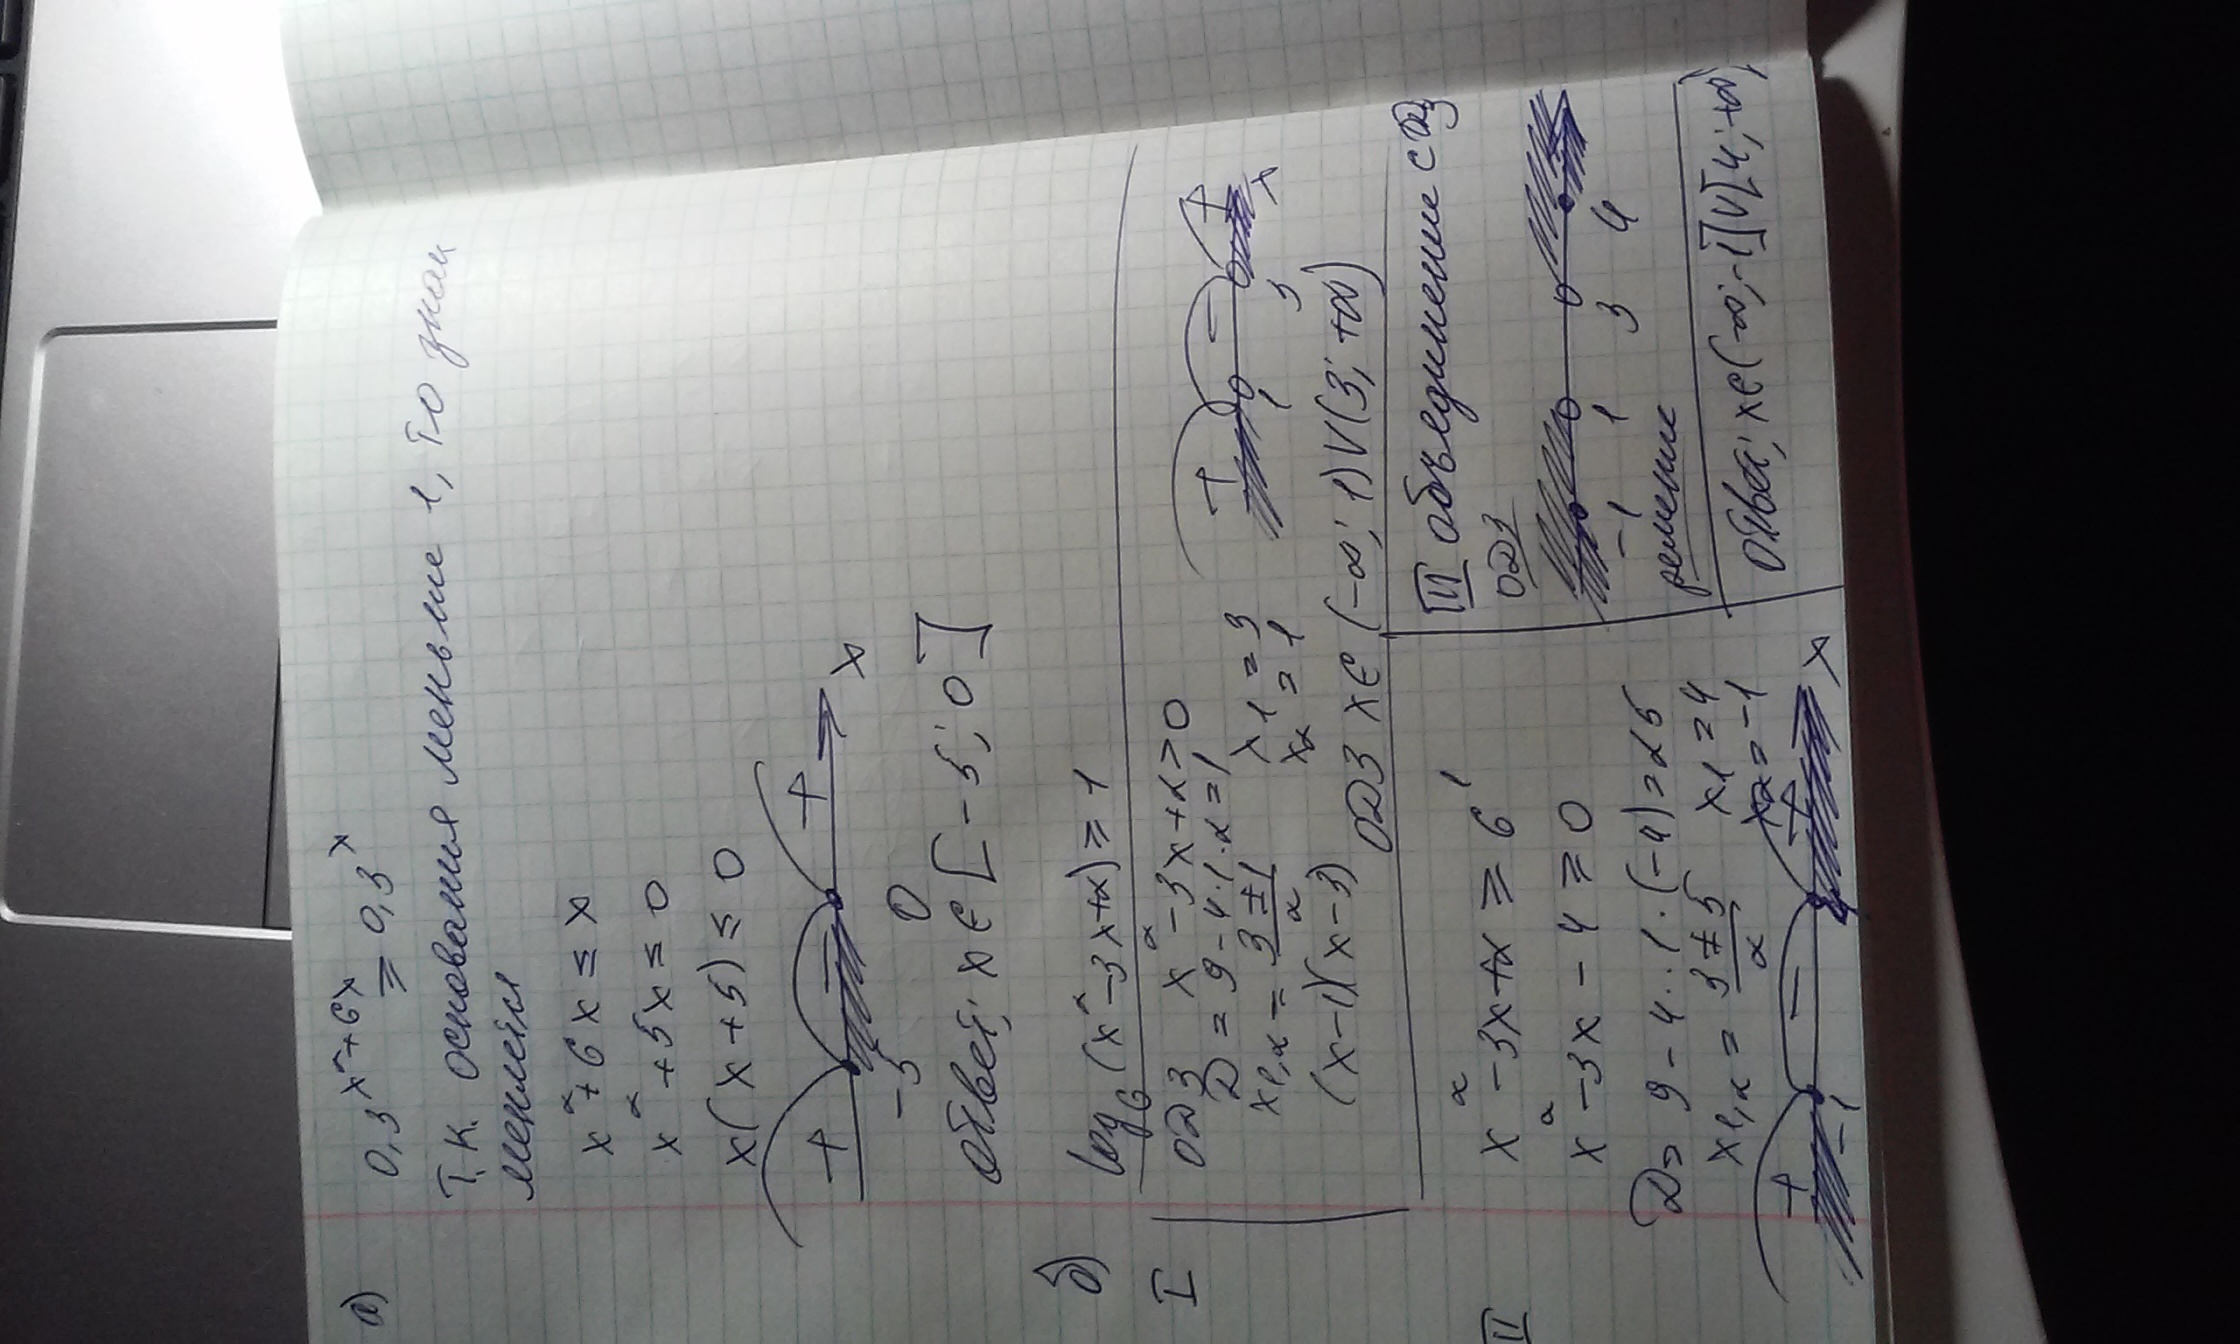 а) 0,3^(x²+6x) ≥ 0,3^x
Т.к. основания меньше 1, то знак
меняется
x²+6x ≤ x
x²+5x ≤ 0
x(x+5) ≤ 0
+ − + x
-5 0
Ответ: x∈[-5; 0]
б) log₆(x²-3x+2) ≥ 1
I ОДЗ x²-3x+2>0
D = 9-4·1·2=1
x1,2 = (3±1)/2 x1=3
x2=1
(x-1)(x-3)
+ − + x
1 3
ОДЗ x∈(-∞; 1)V(3; +∞)
II x²-3x+2 ≥ 6¹
x²-3x-4 ≥ 0
D= 9-4·1·(-4)=25
x1,2 = (3±5)/2 x1=4
x2=-1
+ − + x
-1 4
III объединение с ОДЗ
ОДЗ
-1 1 3 4
решение
Ответ: x∈(-∞; -1]V[4; +∞)